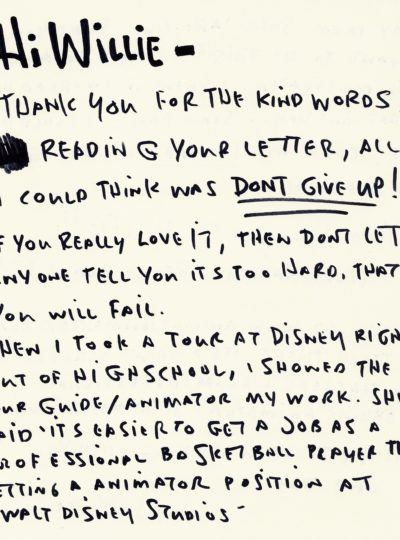 Hi WILLIE -
THANK YOU FOR THE KIND WORDS
READING YOUR LETTER, ALL
I COULD THINK WAS DONT GIVE UP!
IF YOU REALLY LOVE IT, THEN DONT LET
ANYONE TELL YOU ITS TOO HARD, THAT
YOU WILL FAIL.
WHEN I TOOK A TOUR AT DISNEY RIGH
UT OF HIGHSCHOOL, I SHOWED THE
UR GUIDE/ANIMATOR MY WORK. SH
AID 'ITS EASIER TO GET A JOB AS A
ROFESSIONAL BASKETBALL PLAYER TH
ETTING A ANIMATOR POSITION AT
WALT DISNEY STUDIOS-